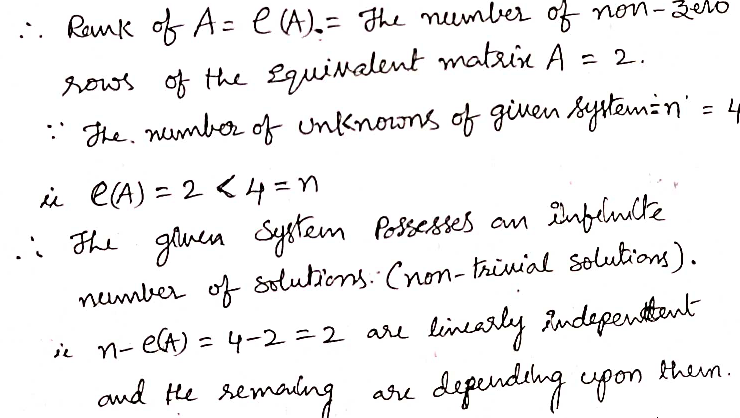 ∴ Rank of A = ρ(A). = The number of non-zero
rows of the equivalent matrix A = 2.
∵ The. number of unknowns of given system = n = 4
ie ρ(A) = 2 < 4 = n
∴ The given system possesses an infinite
number of solutions. (non-trivial solutions).
ie n-ρ(A) = 4-2 = 2 are linearly independent
and the remaing are depending upon them.